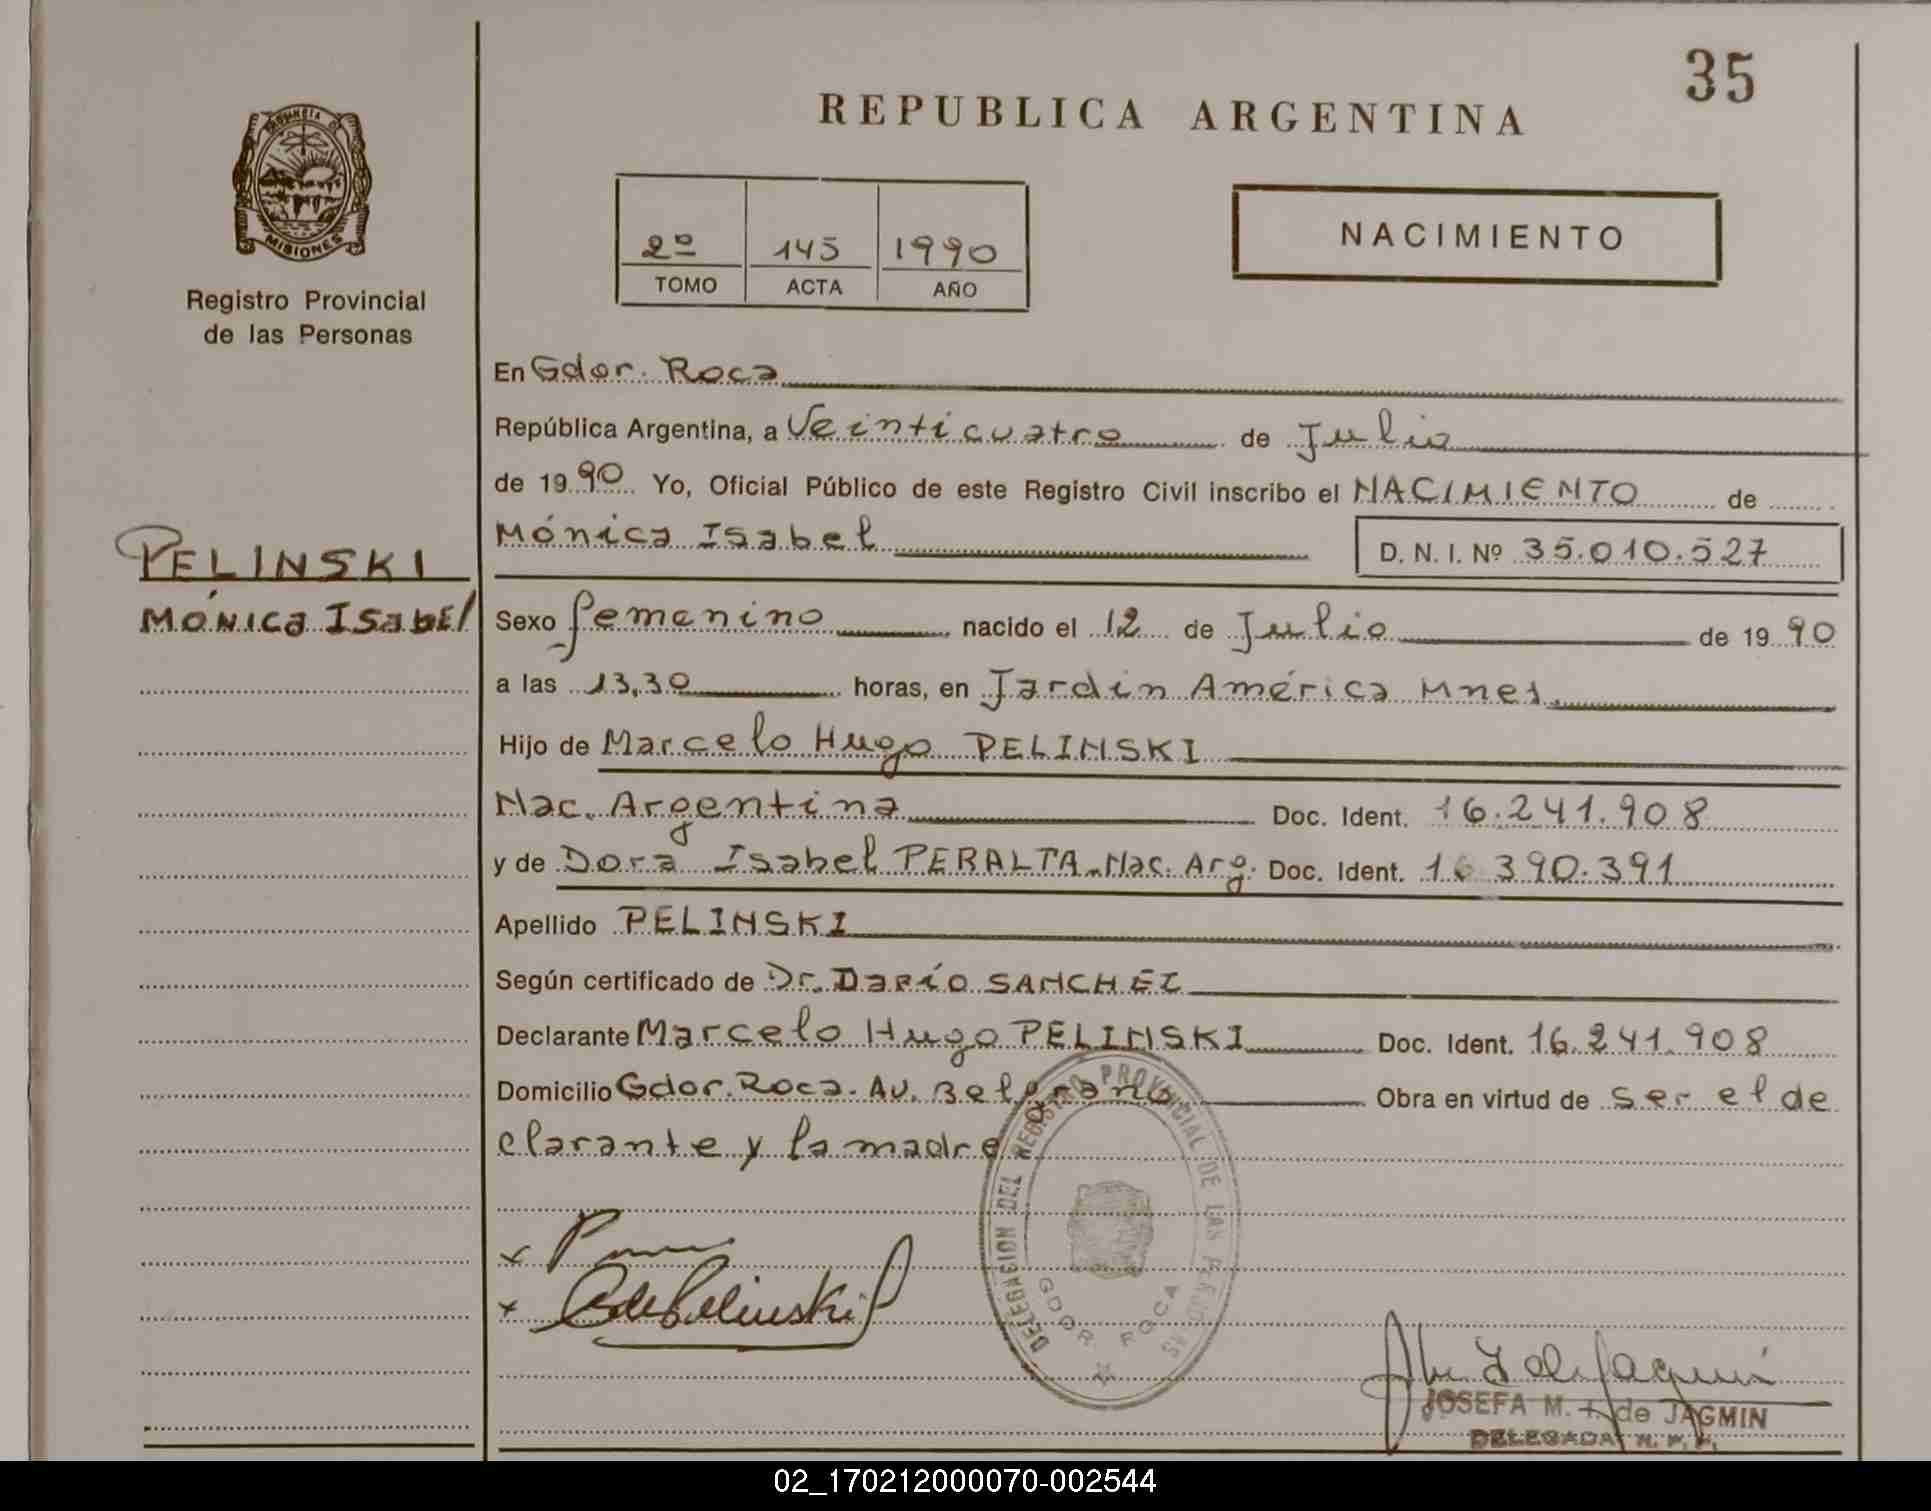 35
REPUBLICA ARGENTINA
PROVINCIA DE
MISIONES
Registro Provincial
de las Personas
2º 145 1990
TOMO ACTA AÑO
NACIMIENTO
En Gdor. Roca
República Argentina, a Veinticuatro de Julio
de 1990 Yo, Oficial Público de este Registro Civil inscribo el NACIMIENTO de
Mónica Isabel D. N. I. Nº 35.010.527
PELINSKI
MÓNICA ISabEl
Sexo femenino nacido el 12 de Julio de 1990
a las 13,30 horas, en Jardín América Mnes.
Hijo de Marcelo Hugo PELINSKI
Nac. Argentina Doc. Ident. 16.241.908
y de Dora Isabel PERALTA-Nac. Arg. Doc. Ident. 16 390.391
Apellido PELINSKI
Según certificado de Dr. Darío SANCHEZ
Declarante Marcelo Hugo PELINSKI Doc. Ident. 16.241.908
Domicilio Gdor. Roca. Av. Belgrano Obra en virtud de ser el de
clarante y la madre
DELEGACION DEL REGISTRO PROVINCIAL DE LAS PERSONAS
GDOR. ROCA
x
x Pelinski
JOSEFA M. de JAGMIN
DELEGADA R. P. P.
02_170212000070-002544